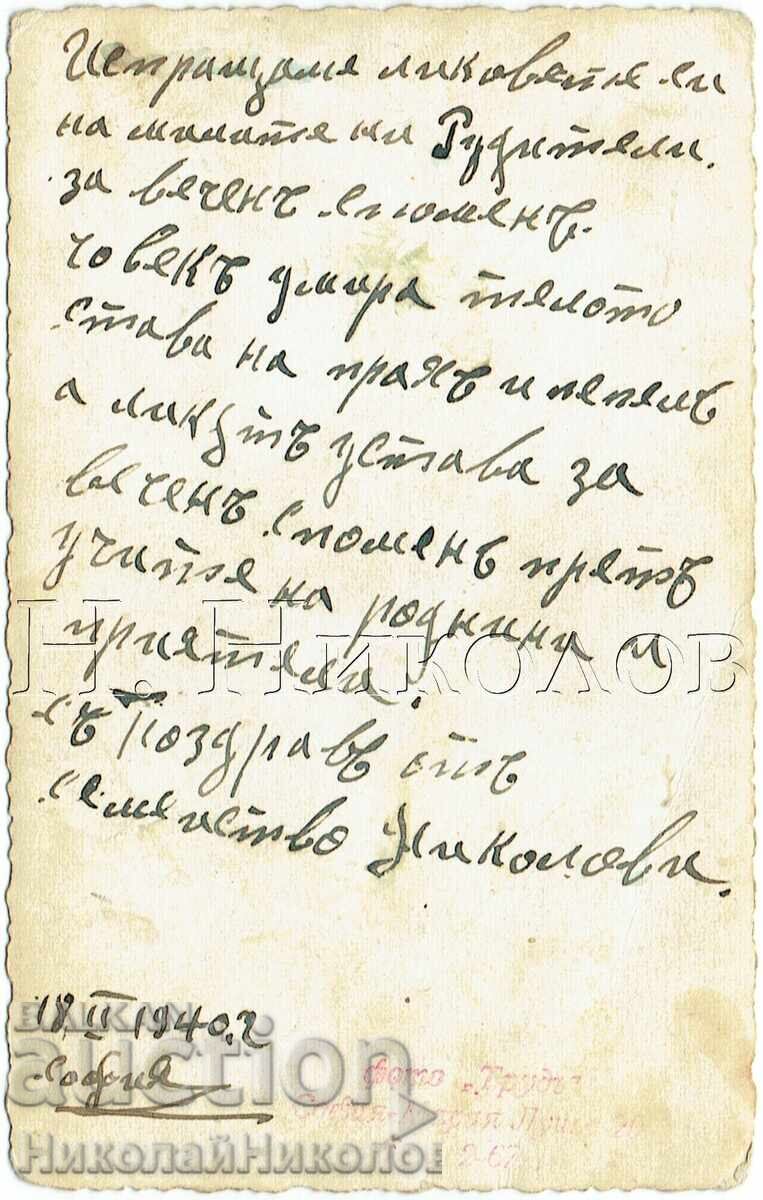 Испращаме ликоветя си
на милите ни Рудители.
за веченъ споменъ.
човекъ умира тялото
става на прахъ и пепелъ
а ликътъ устава за
веченъ споменъ прѣтъ
учитѣ на роднини и
приятели.
съ Поздравъ отъ
семейство Николови.
18 II 1940. г
София
Фото „Трудъ“
Н. Николов
BALKAN
auction
НиколайНиколов